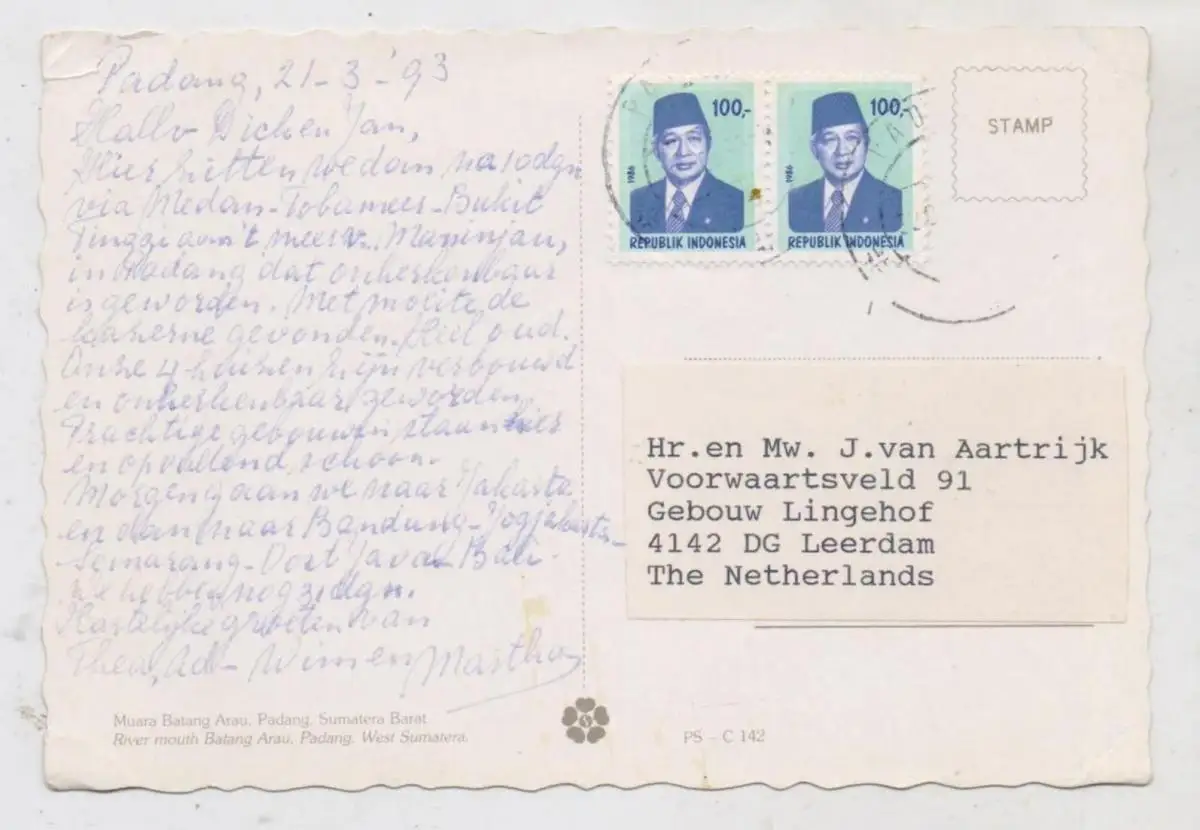 Padang, 21-3-'93
Hallo Dicken Jan,
Hier zitten we dan na 10 dgn
via Medan-Tobameer-Bukit
Tinggi aan 't meer v. Maninjau,
in Padang dat onherkenbaar
is geworden. Met moeite de
kazerne gevonden. Heel oud.
Onze 4 huizen zijn verbouwd
en onherkenbaar geworden.
Prachtige gebouwen staan hier
en opvallend schoon.
Morgen gaan we naar Jakarta
en dan naar Bandung-Jogjakarta-
Semarang-Oost Java-Bali.
We hebben nog dgn.
Hartelijke groeten van
Thea, Ad- Wim en Martha
Muara Batang Arau, Padang, Sumatera Barat
River mouth Batang Arau, Padang, West Sumatera.
100,-
1986
REPUBLIK INDONESIA
100,-
1986
REPUBLIK INDONESIA
STAMP
Hr.en Mw. J.van Aartrijk
Voorwaartsveld 91
Gebouw Lingehof
4142 DG Leerdam
The Netherlands
PS - C 142